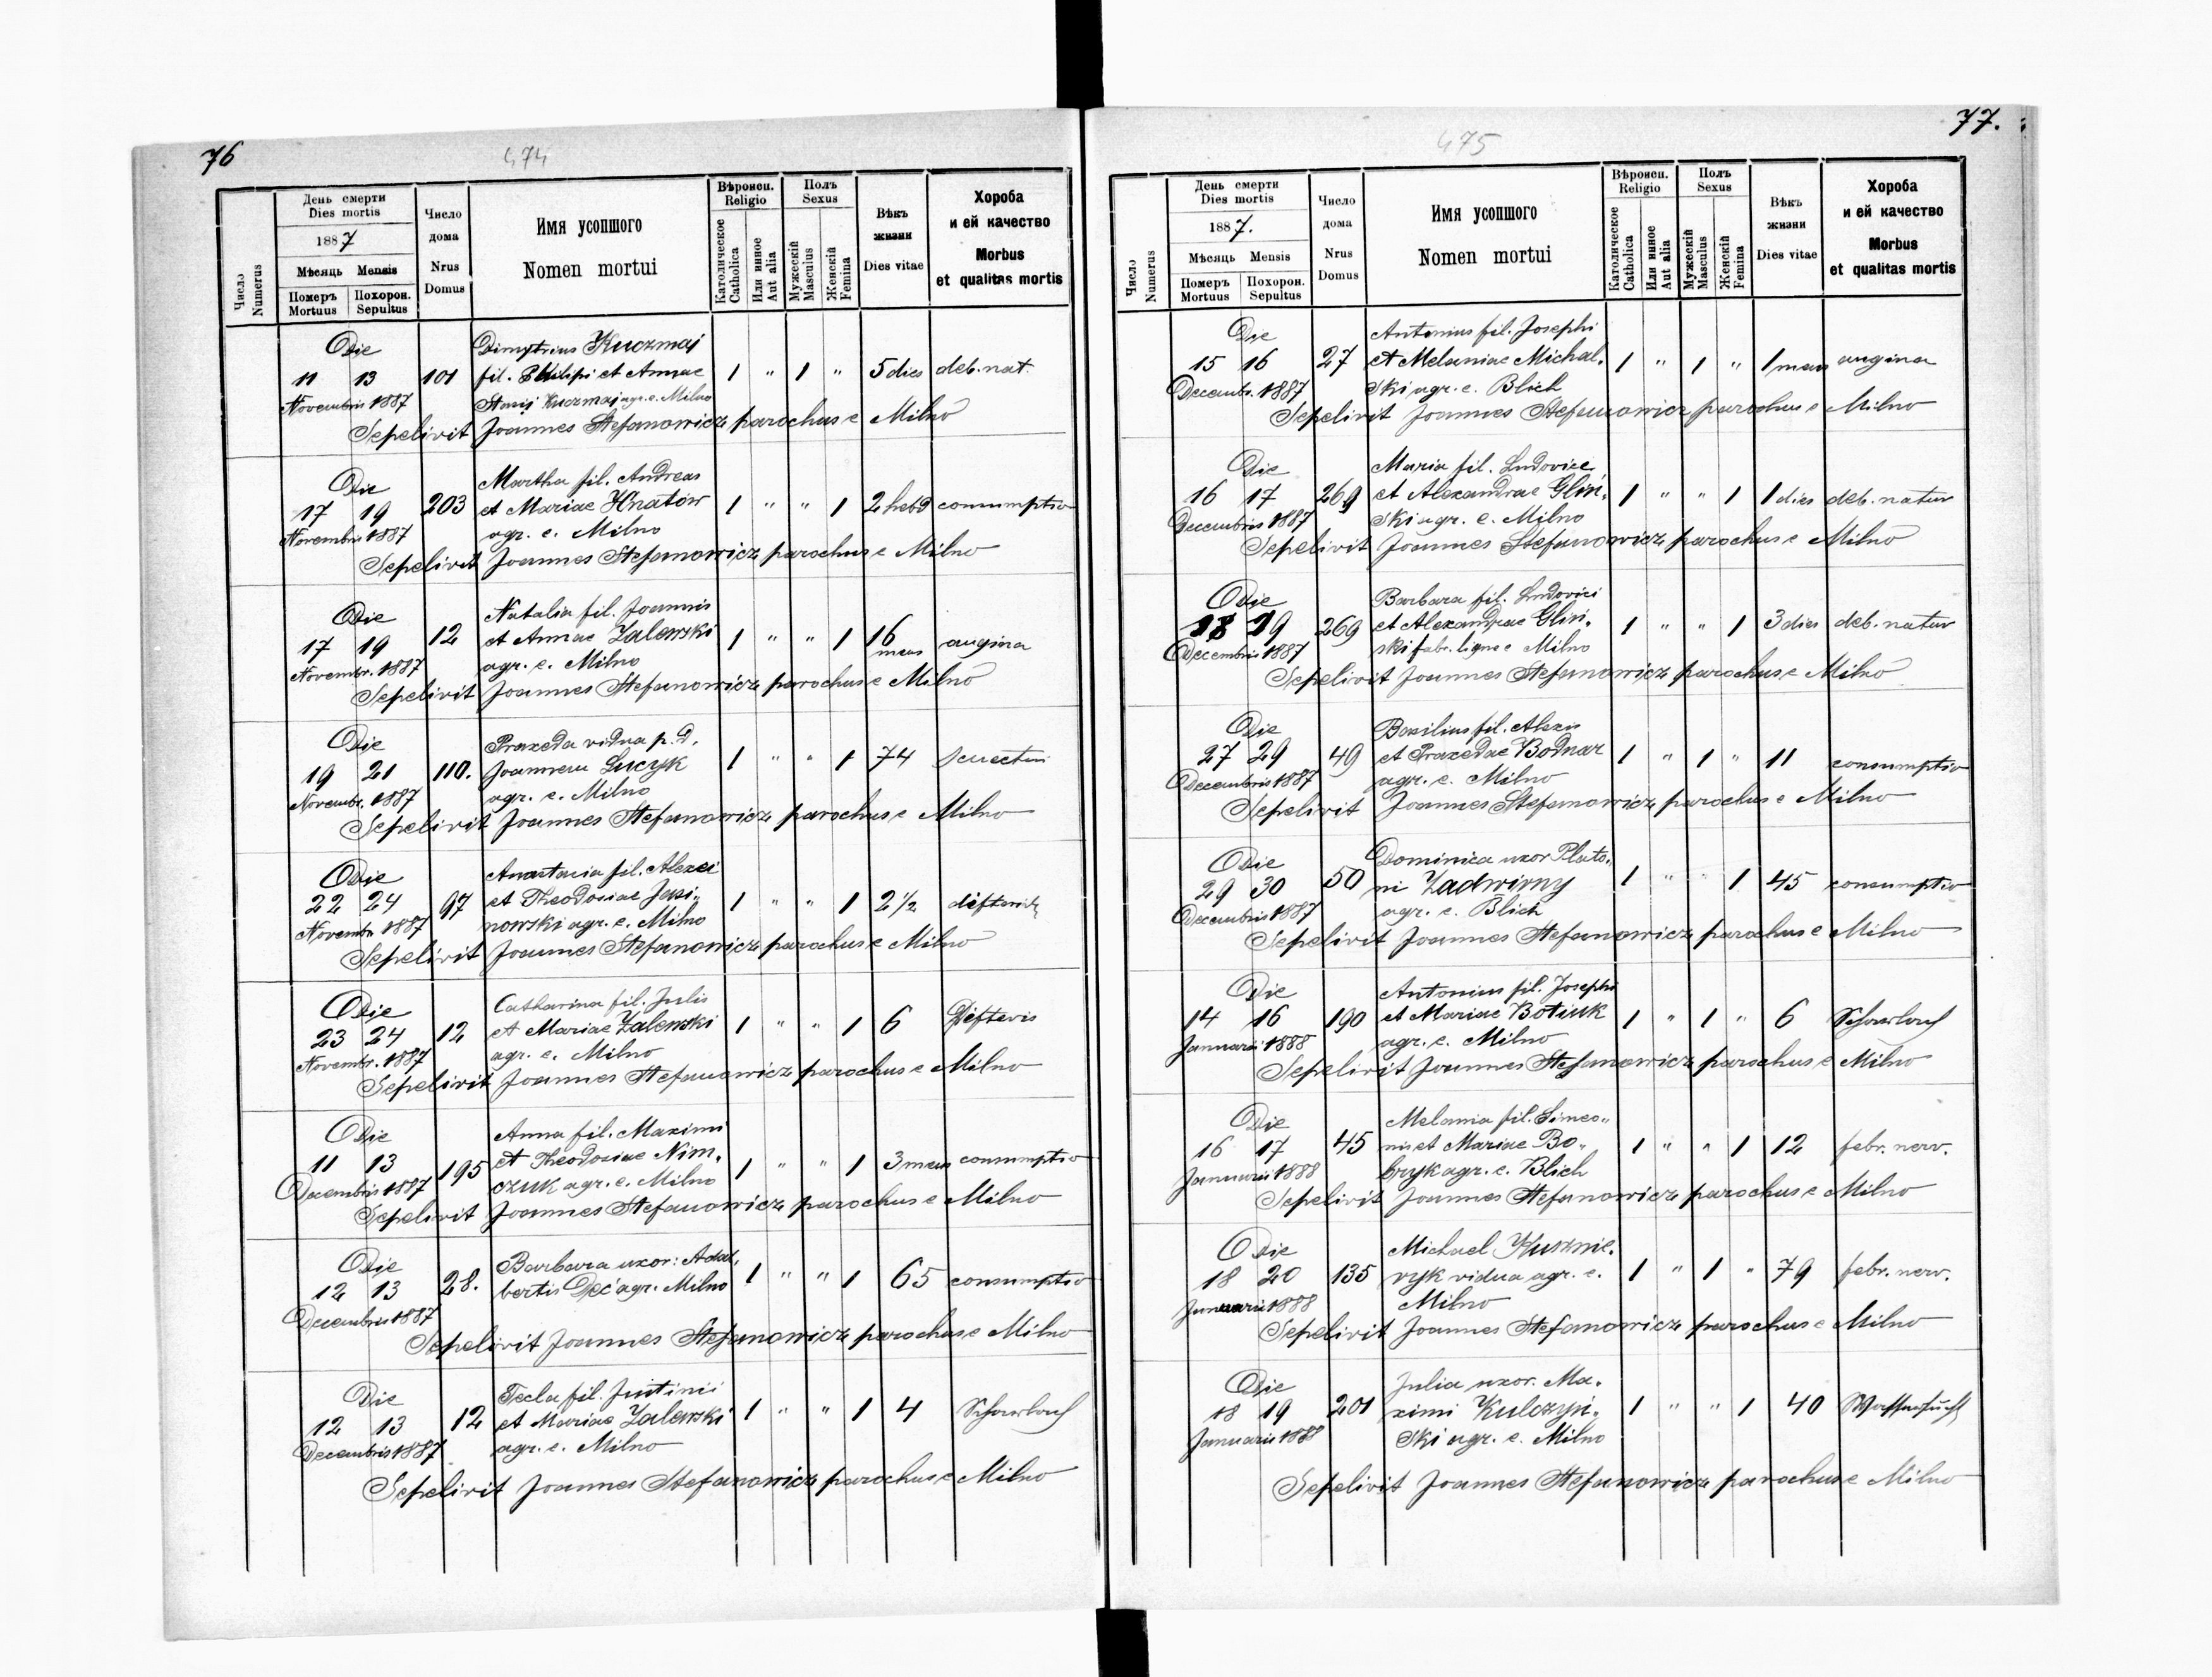 76
474
Число Numerus
День смерти Dies mortis
1887
Мѣсяць Mensis
Померъ Mortuus
Похорон. Sepultus
Число дома Nrus Domus
Имя усопшого
Nomen mortui
Вѣроисп. Religio
Католическое Catholica
Или инное Aut alia
Полъ Sexus
Мужескій Masculus
Женскій Femina
Вѣкъ жизни Dies vitae
Хороба и ей качество
Morbus et qualitas mortis
Die Dimytrius Kuczmaj
11 13 101 fil. Philipi et Annae 1 " 1 " 5 dies deb. nat.
Novembris 1887 Kuczmaj agr. e. Milno
Sepelivit Joannes Stefanowicz parochus e Milno
Die Martha fil. Andreas
17 19 203 et Mariae Hnatów 1 " " 1 2 hebd consumptio
Novembris 1887 agr. e. Milno
Sepelivit Joannes Stefanowicz parochus e Milno
Die Natalia fil. Joannis
17 19 12 et Annae Zalewski 1 " " 1 16 mens angina
Novembr. 1887 agr. e. Milno
Sepelivit Joannes Stefanowicz parochus e Milno
Die Praxeda vidua p. d.
19 21 110. Joannem Lucyk 1 " " 1 74
Novembr. 1887 agr. e. Milno
Sepelivit Joannes Stefanowicz parochus e Milno
Die Anastasia fil. Alexei
22 24 97 et Theodosiae Jasi-
Novembr. 1887 nowski agr. e. Milno 1 " " 1 2 1/2
Sepelivit Joannes Stefanowicz parochus e Milno
Die Catharina fil. Julis
23 24 12 et Mariae Zalewski 1 " " 1 6 Difteris
Novembr. 1887 agr. e. Milno
Sepelivit Joannes Stefanowicz parochus e Milno
Die Anna fil. Maximi
11 13 195 et Theodosiae Nim- 1 " " 1 3 mens consumptio
Decembris 1887 czuk agr. e. Milno
Sepelivit Joannes Stefanowicz parochus e Milno
Die Barbara uxor: Adal-
12 13 28. bertis Deć agr. Milno 1 " " 1 65 consumptio
Decembris 1887
Sepelivit Joannes Stefanowicz parochus e Milno
Die Tecla fil. Justinii
12 13 12 et Mariae Zalewski 1 " " 1 4 Scharlach
Decembris 1887 agr. e. Milno
Sepelivit Joannes Stefanowicz parochus e Milno
77.
475
Число Numerus
День смерти Dies mortis
1887.
Мѣсяць Mensis
Померъ Mortuus
Похорон. Sepultus
Число дома Nrus Domus
Имя усопшого
Nomen mortui
Вѣроисп. Religio
Католическое Catholica
Или инное Aut alia
Полъ Sexus
Мужескій Masculus
Женскій Femina
Вѣкъ жизни Dies vitae
Хороба и ей качество
Morbus et qualitas mortis
Die Antonius fil. Josephi
15 16 27 et Melaniae Michal- 1 " 1 " 1 mens angina
Decembr. 1887 ski agr. e. Blich
Sepelivit Joannes Stefanowicz parochus e Milno
Die Maria fil. Ludovice
16 17 269 et Alexandrae Gliń- 1 " " 1 1 dies deb. natur
Decembris 1887 ski agr. e. Milno
Sepelivit Joannes Stefanowicz parochus e Milno
Die Barbara fil. Ludovici
18 19 269 et Alexandrae Gliń- 1 " " 1 3 dies deb. natur
Decembris 1887 ski fabr. lign e Milno
Sepelivit Joannes Stefanowicz parochus e Milno
Die Basilius fil. Alexis
27 29 49 et Praxedae Bodnar 1 " 1 " 11 consumptio
Decembris 1887 agr. e. Milno
Sepelivit Joannes Stefanowicz parochus e Milno
Die Dominica uxor Plato-
29 30 50 ni Zadwirny 1 " " 1 45 consumptio
Decembris 1887 agr. e. Blich
Sepelivit Joannes Stefanowicz parochus e Milno
Die Antonius fil. Josephi
14 16 190 et Mariae Botiuk 1 " 1 " 6 Scharlach
Januarii 1888 agr. e. Milno
Sepelivit Joannes Stefanowicz parochus e Milno
Die Melania fil. Simeo-
16 17 45 nis et Mariae Bo- 1 " " 1 12 febr. nerv.
Januarii 1888 bryk agr. e. Blich
Sepelivit Joannes Stefanowicz parochus e Milno
Die Michael Kusznie-
18 20 135 ryk vidua agr. e. 1 " 1 " 79 febr. nerv.
Januarii 1888 Milno
Sepelivit Joannes Stefanowicz parochus e Milno
Die Julia uxor. Ma-
18 19 201 ximi Kulczyń- 1 " " 1 40 Wassersucht
Januarii 1888 ski agr. e. Milno
Sepelivit Joannes Stefanowicz parochus e Milno